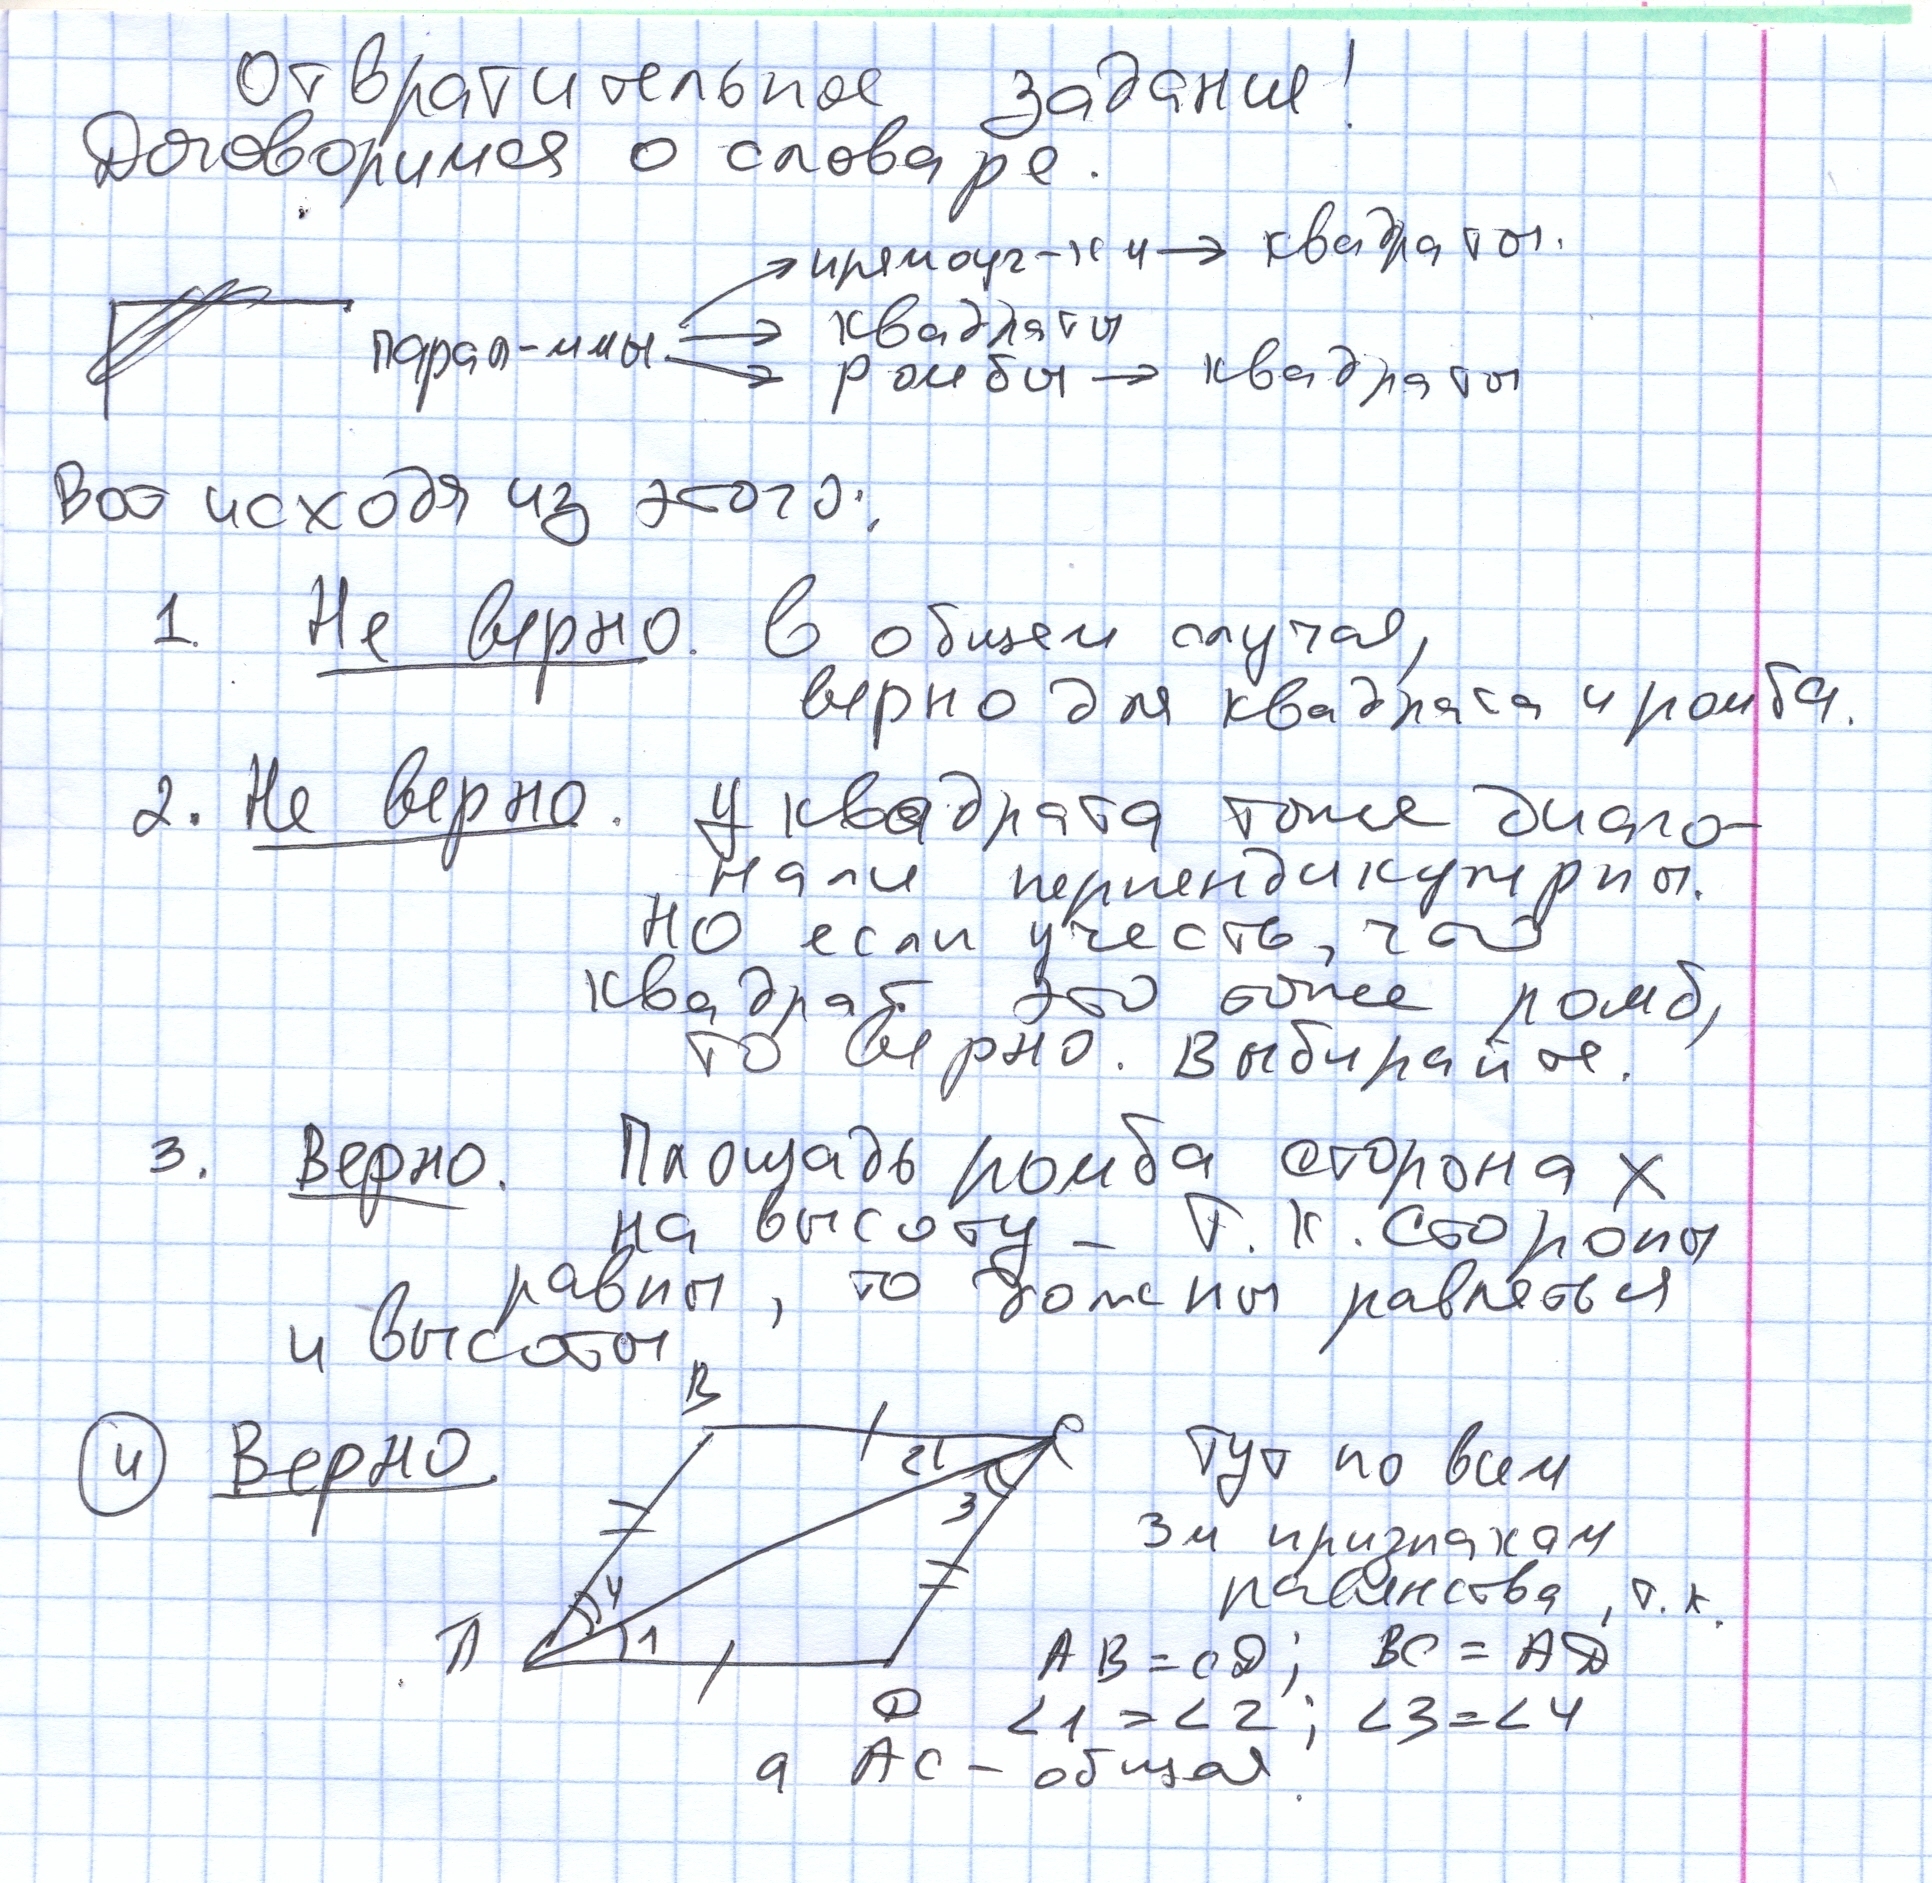 Отвратительное задание!
Договоримся о словаре.
прямоуг-ки → квадраты.
парал-ммы → квадраты
ромбы → квадраты
Вот исходя из этого:
1. Не верно. В общем случая,
верно для квадрата и ромба.
2. Не верно. У квадрата тоже диаго-
нали перпендикулярны.
Но если учесть, что
квадрат это тоже ромб,
то верно. Выбирайте.
3. Верно. Площадь ромба сторона х
на высоту – т.к. стороны
равны, то должны равняться
и высоты
4 Верно.
B C
2
3
4
1
A
D
Тут по всем
3м признакам
равенства, т.к.
AB = CD; BC = AD
∠1 = ∠2; ∠3 = ∠4
а AC – общая.